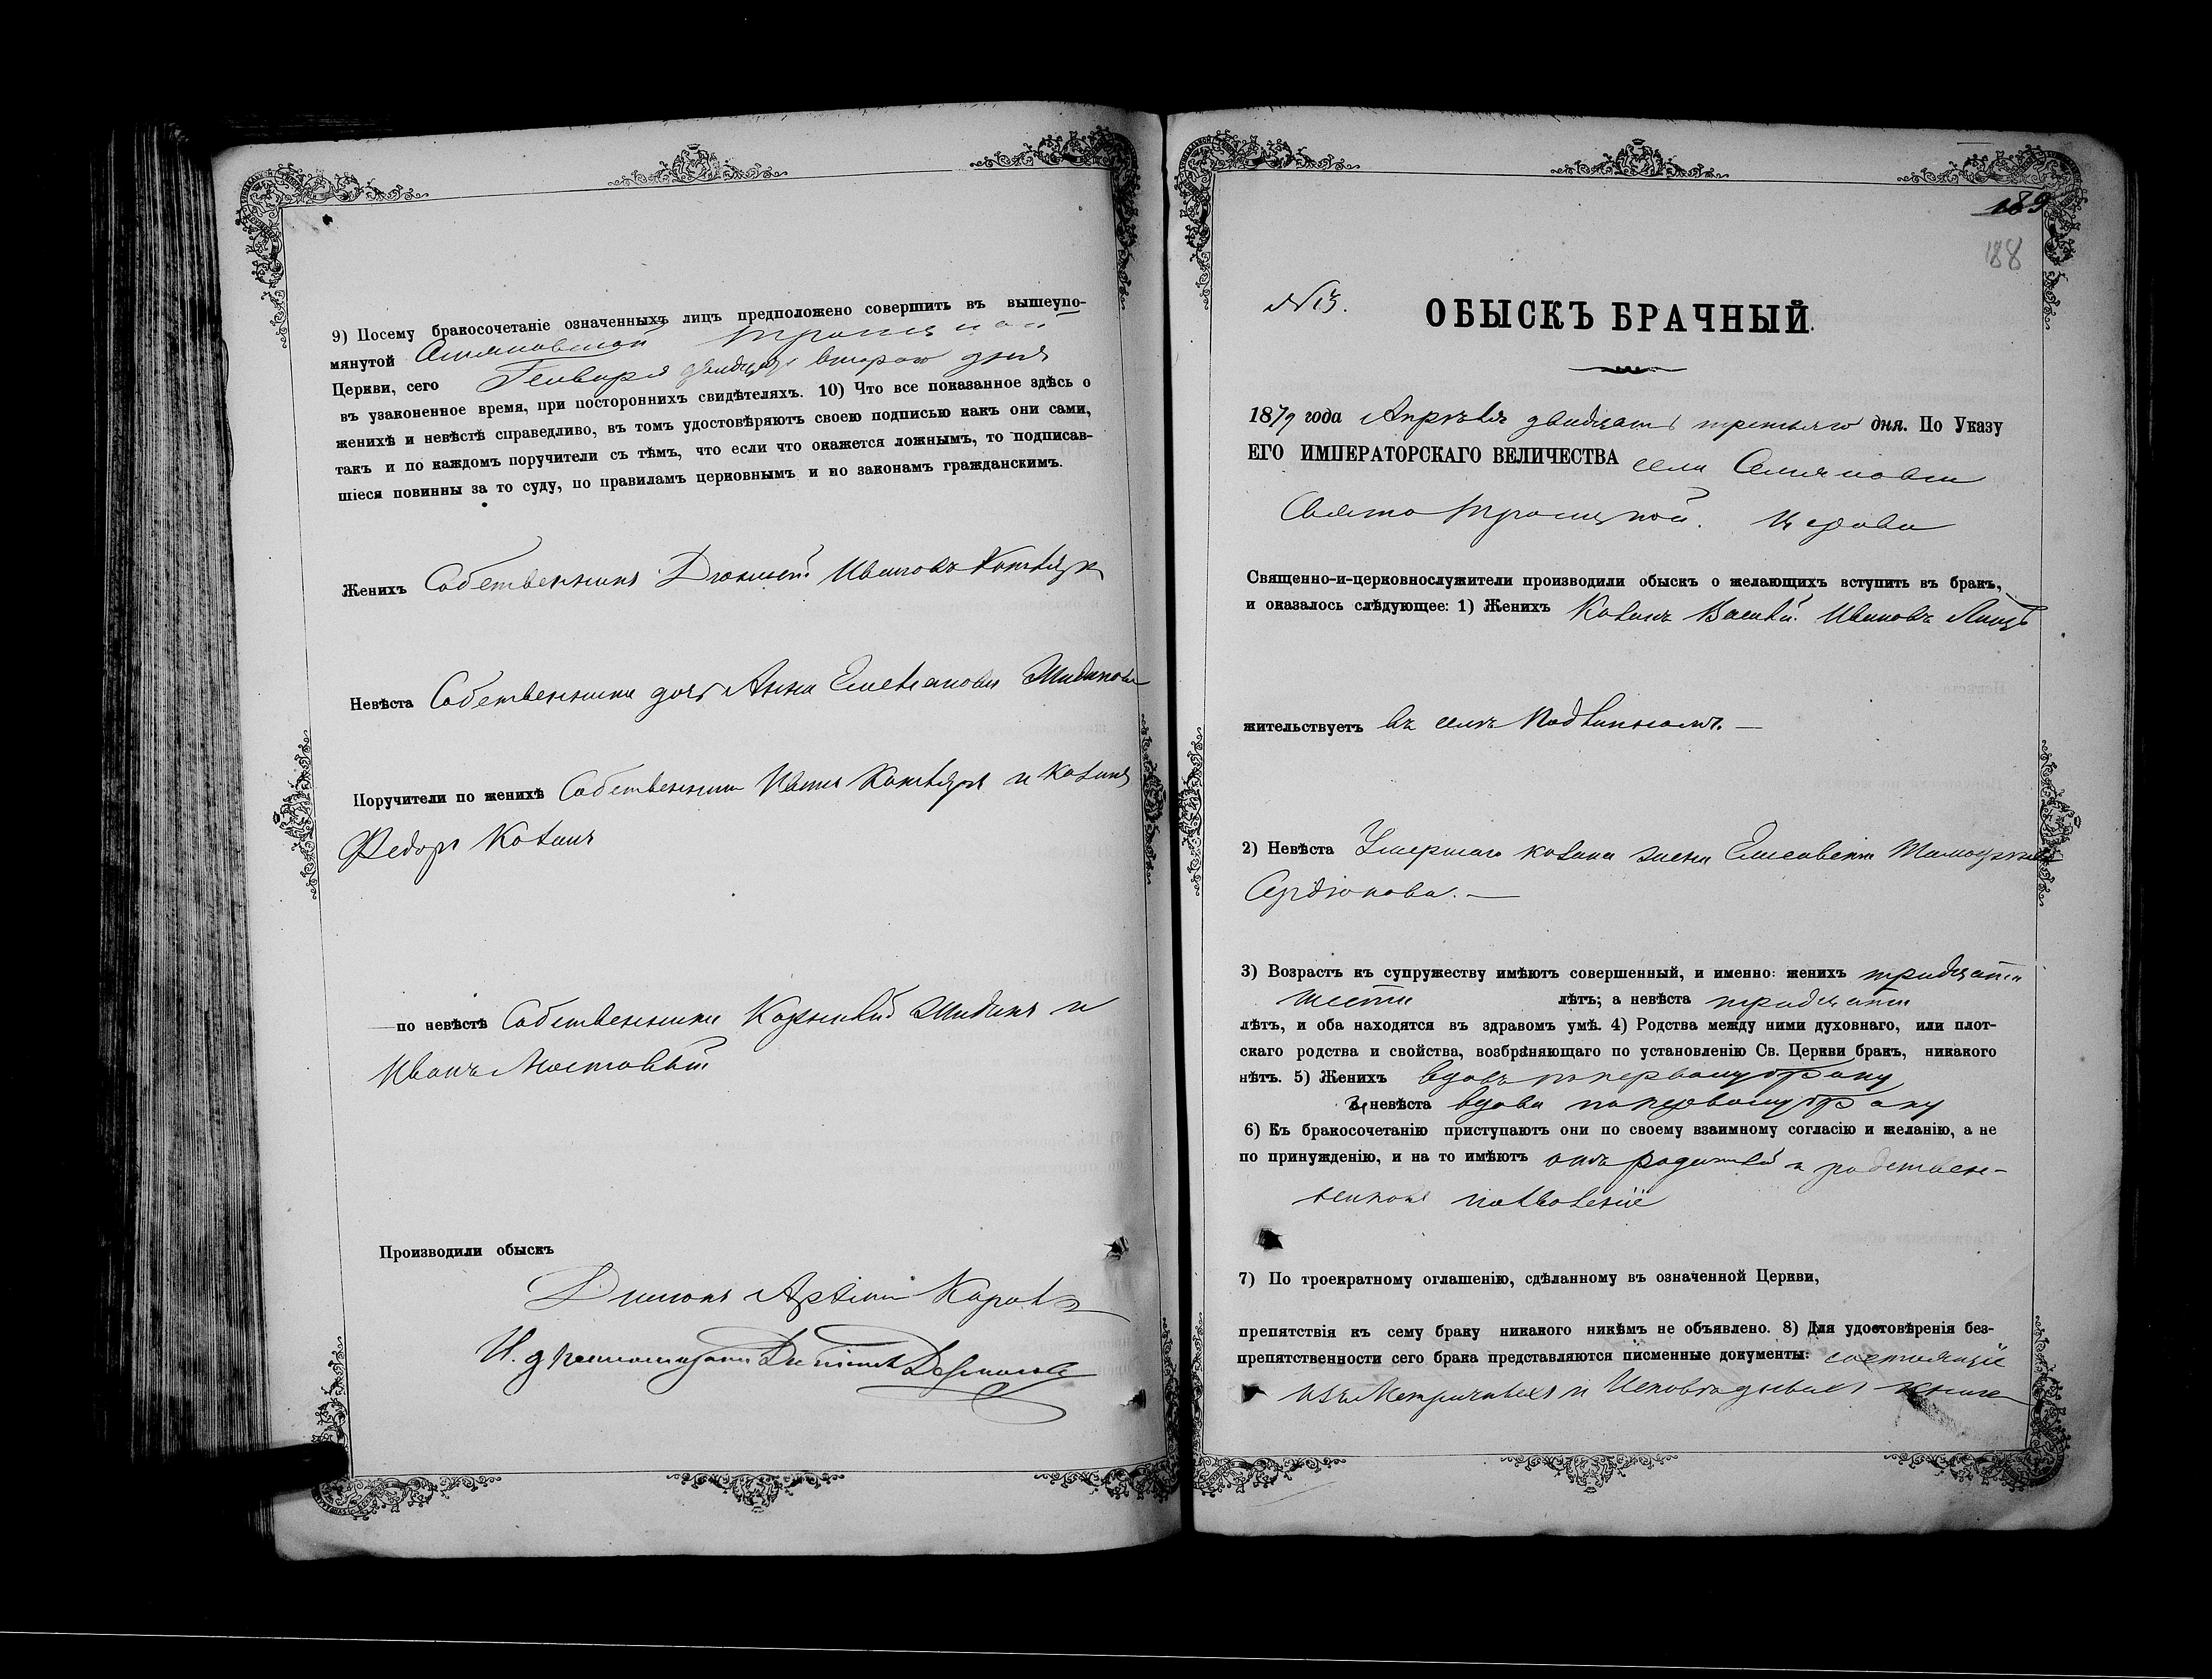 9) Посему бракосочетаніе означенныхъ лицъ предположено совершить въ вышеупо-
мянутой Семяновской Троицкой
Церкви, сего Генваря двадцать втораго дня
въ узаконенное время, при постороннихъ свидѣтеляхъ. 10) Что все показанное здѣсь о
женихѣ и невѣстѣ справедливо, въ томъ удостовѣряютъ своею подписью какъ они сами,
такъ и по каждомъ поручители съ тѣмъ, что если что окажется ложнымъ, то подписав-
шіеся повинны за то суду, по правиламъ церковнымъ и по законамъ гражданскимъ.
Женихъ Собственникъ Иванов Котляр
Невѣста Собственника дочь Анна Емельянова
Поручители по женихѣ Собственники Иван Котляр и Козакъ
Федоръ Козакъ
— по невѣстѣ Собственники Корнилій и
Иванъ Мостовый
Производили обыскъ
Дьяконъ
И. д. Псаломщика
189
188
№ 13.
ОБЫСКЪ БРАЧНЫЙ.
1879 года Апрѣля двадцать третьяго дня. По Указу
ЕГО ИМПЕРАТОРСКАГО ВЕЛИЧЕСТВА села Семяновки
Свято Троицкой. Церкви
Священно-и-церковнослужители производили обыскъ о желающихъ вступить въ бракъ,
и оказалось слѣдующее: 1) Женихъ Козакъ Василій Ивановъ
жительствуетъ въ селѣ
2) Невѣста Умершаго козака жена Елисавета
Сердюкова. —
3) Возрастъ къ супружеству имѣютъ совершенный, и именно: женихъ тридцати
шести лѣтъ; а невѣста тридцати
лѣтъ, и оба находятся въ здравомъ умѣ. 4) Родства между ними духовнаго, или плот-
скаго родства и свойства, возбраняющаго по установленію Св. Церкви бракъ, никакого
нѣтъ. 5) Женихъ вдовъ по первому браку
а невѣста вдова по первому браку
6) Къ бракосочетанію приступаютъ они по своему взаимному согласію и желанію, а не
по принужденію, и на то имѣютъ отъ родителей и родствен-
позволеніе
7) По троекратному оглашенію, сдѣланному въ означенной Церкви,
препятствія къ сему браку никакого никѣмъ не объявлено. 8) Для удостовѣренія без-
препятственности сего брака представляются писменные документы: состоящіе
изъ Метричныхъ и Исповѣдныхъ книгъ